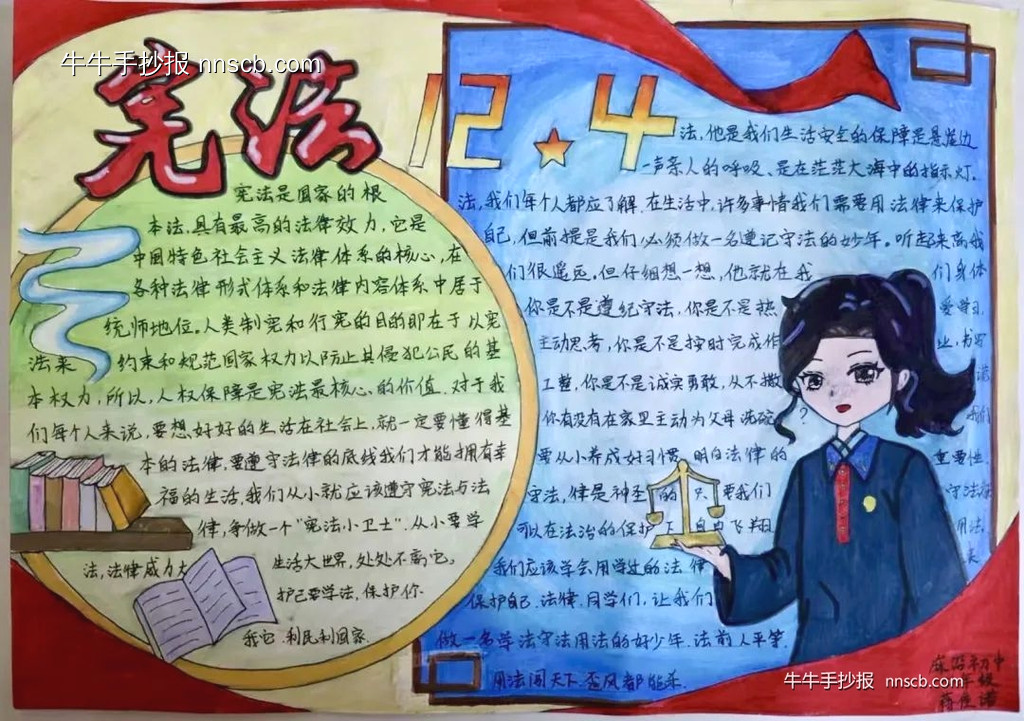 牛牛手抄报 nnscb.com
宪法
宪法是国家的根
本法,具有最高的法律效力,它是
中国特色社会主义法律体系的核心,在
各种法律形式体系和法律内容体系中居于
统师地位。人类制宪和行宪的目的即在于以宪
法来 约束和规范国家权力以防止其侵犯公民的基
本权力,所以,人权保障是宪法最核心的价值.对于我
们每个人来说,要想好好的生活在社会上,就一定要懂得基
本的法律,要遵守法律的底线我们才能拥有幸
福的生活,我们从小就应该遵守宪法与法
律,争做一个"宪法小卫士".从小要学
法,法律威力大 生活大世界,处处不离它。
护己要学法,保护你
我它.利民利国家.
12.4
法,他是我们生活安全的保障是悬崖边
一声亲人的呼吸、是在茫茫大海中的指示灯.
法,我们每个人都应了解.在生活中,许多事情我们需要用法律来保护
自己,但前提是我们必须做一名遵记守法的少年。听起来离我
们很遥远,但仔细想一想,他就在我 们身体
你是不是遵纪守法,你是不是热 爱学习.
主动思考,你是不是按时完成作 业,书写
工整,你是不是诚实勇敢,从不撒
你有没有在家里主动为父母洗碗 ?
要从小养成好习惯,明白法律的 重要性.
守法,律是神圣的 只要我们
可以在法治的保护下自由飞翔 用法,
我们应该学会用学过的法律 来
保护自己.法律.同学们,让我们
做一名学法守法用法的好少年.法前人平等.
用法闯天下.歪风都能杀.
牛牛手抄报 nnscb.com